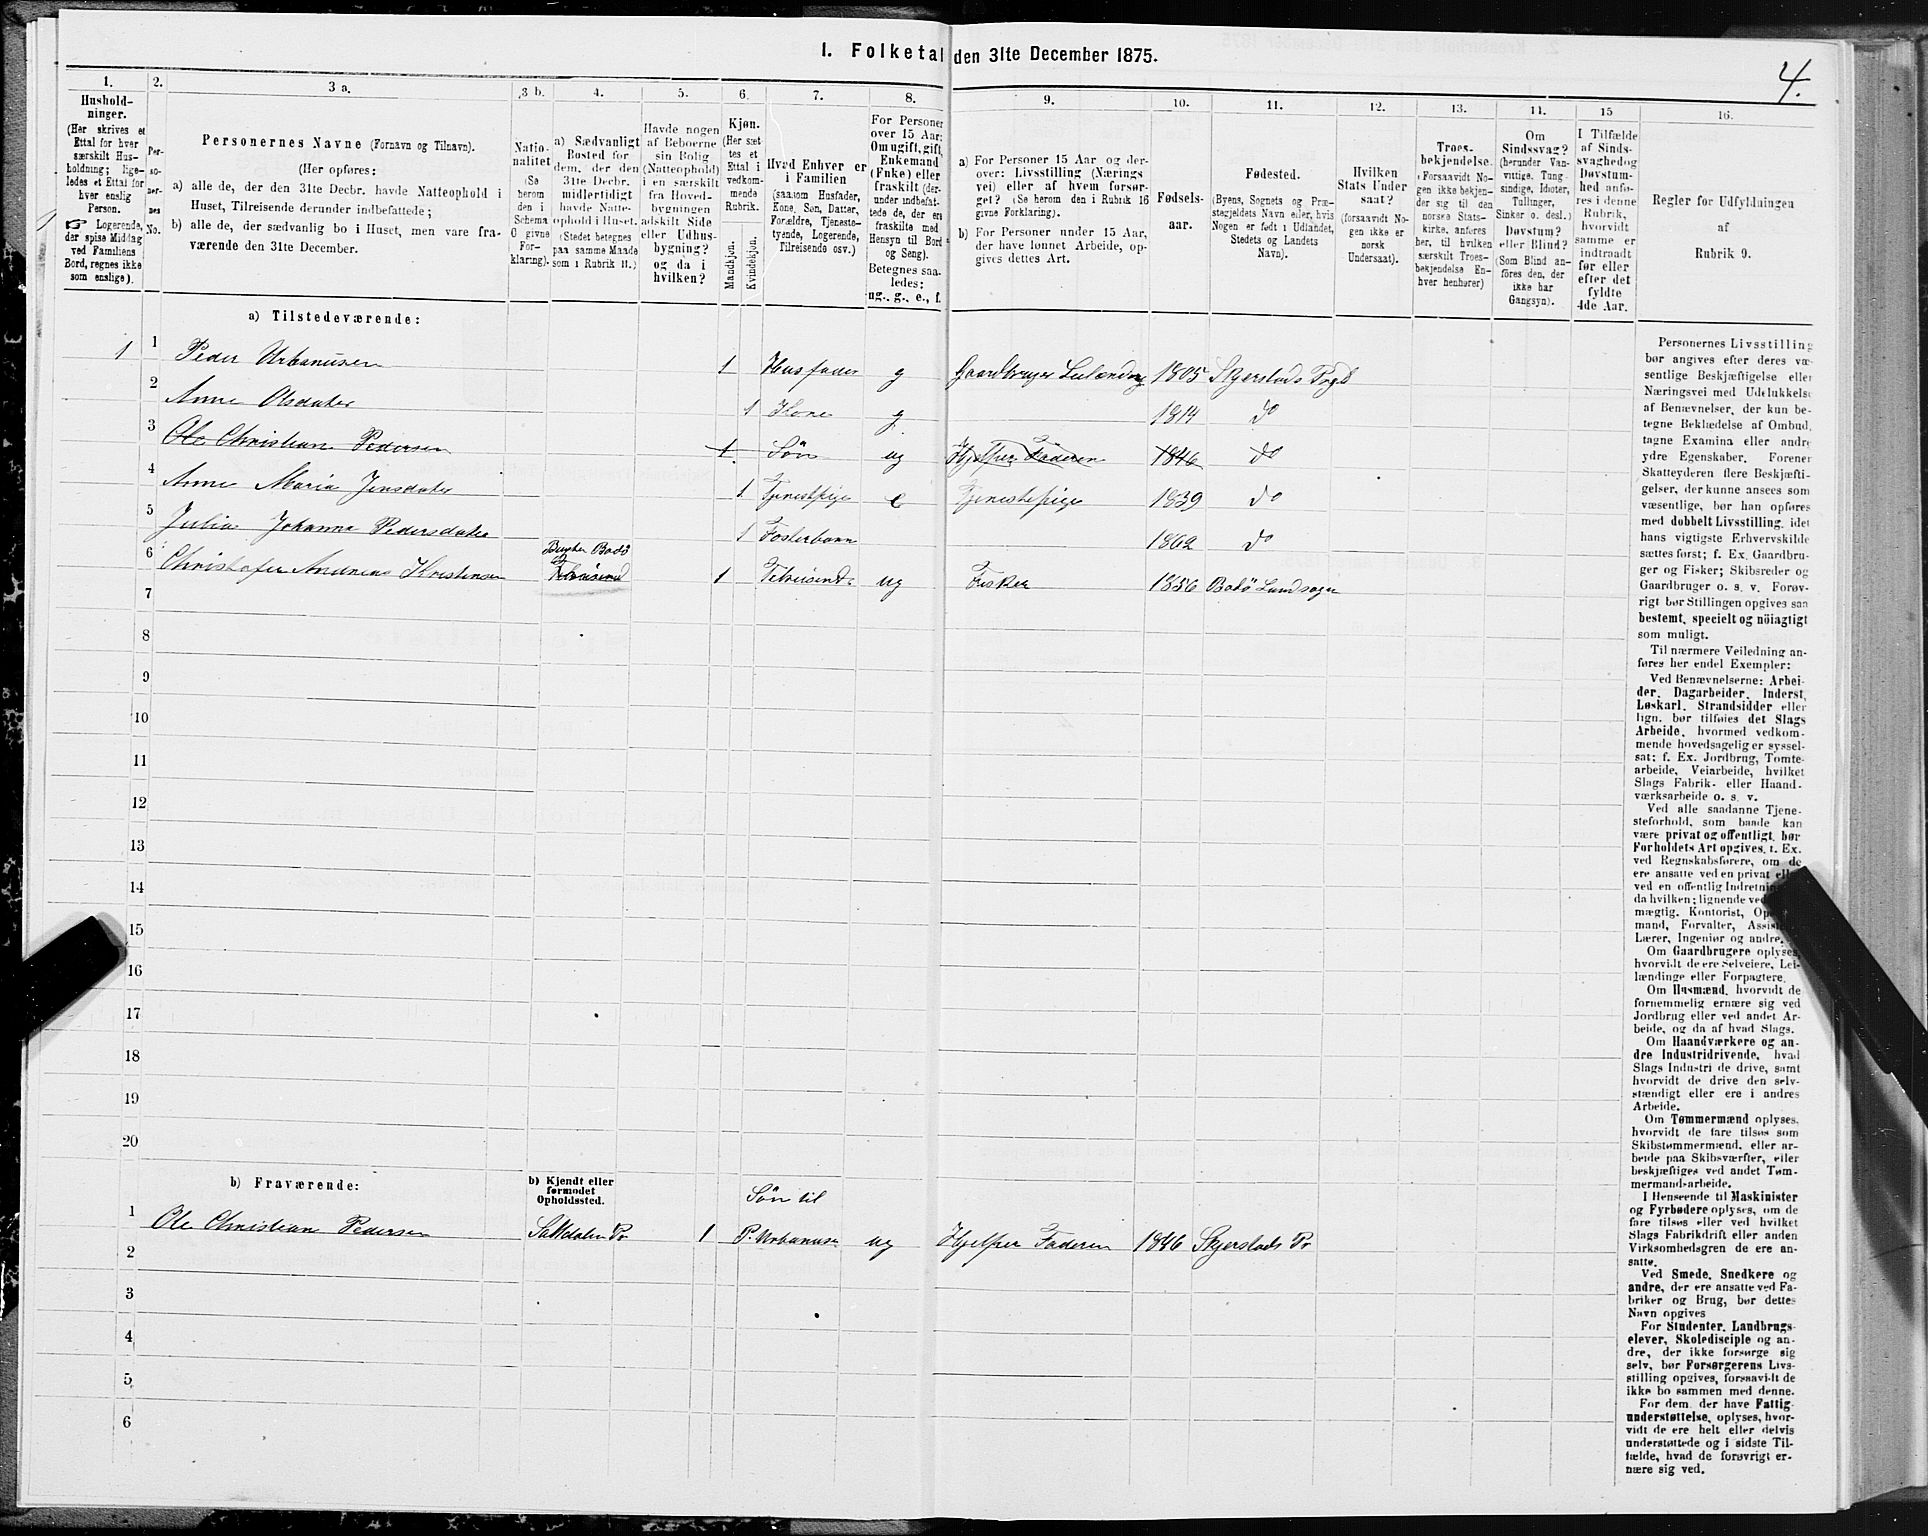 4.
1. Folketal den 31te December 1875.
1.
Hushold-
ninger.
(Her skrives et
Ettal for hver
særskilt Hus-
holdning; lige-
ledes et Ettal for
hver enslig
Person.
☞ Logerende,
der spise Middag
ved Familiens
Bord, regnes ikke
som enslige).
2.
Per-
so-
ner-
nes
No.
3 a.
Personernes Navne (Fornavn og Tilnavn).
(Her opføres:
a) alle de, der den 31te Decbr. havde Natteophold i
Huset, Tilreisende derunder indbefattede;
b) alle de, der sædvanlig bo i Huset, men vare fra-
værende den 31te December.
3 b.
Natio-
nalitet
(Se
herom
den i
Schema
O givne
For-
klaring).
4.
a) Sædvanligt
Bosted for
dem, der den
31te Decbr.
midlertidigt
havde Natte-
ophold i Huset.
(Stedet betegnes
paa samme Maade
som i Rubrik 11.)
5.
Havde nogen
af Beboerne
sin Bolig
(Natteophold)
i en særskilt
fra Hoved-
bygningen
adskilt Side
eller Udhus-
bygning?
og da i
hvilken?
6.
Kjøn.
(Her sæt
tes et
Ettal i
vedkom-
mende
Rubrik.
Mandkjøn.
Kvindekjøn.
7.
Hvad Enhver er
i Familien
(saasom Husfader,
Kone, Søn, Datter,
Forældre, Tjeneste-
tyende, Logerende,
Tilreisende osv.)
8.
For Personer
over 15 Aar:
Om ugift, gift,
Enkemand
(Enke) eller
fraskilt (der-
under indbefat-
tede de, der ere
fraskilte med
Hensyn til Bord
og Seng).
Betegnes saa-
ledes:
ug., g., e., f.
9.
a) For Personer 15 Aar og der-
over: Livsstilling (Nærings
vei) eller af hvem forsør-
get? (Se herom den i Rubrik 16
givne Forklaring).
b) For Personer under 15 Aar,
der have lønnet Arbeide, op-
gives dettes Art.
10.
Fødsels-
aar.
11.
Fødested.
(Byens, Sognets og Præ-
stegjeldets Navn eller, hvis
Nogen er født i Udlandet,
Stedets og Landets
Navn).
12.
Hvilken
Stats Under
saat?
(forsaavidt No-
gen ikke er
norsk
Undersaat).
13.
Troes-
bekjendelse.
(Forsaavidt No-
gen ikke bekjen-
der sig til den
norske Stats-
kirke, anføres
her, til hvilken
særskilt Troes-
bekjendelse En-
hver henhører)
14.
Om
Sindssvag?
(herunder Van-
vittige, Tung-
sindige, Idioter,
Tullinger,
Sinker o. desl.)
Døvstum?
eller Blind?
(Som Blind an-
føres den, der
ikke har
Gangsyn).
15
I Tilfælde
af Sinds-
svaghed og
Døvstum-
hed anfø-
res i denne
Rubrik,
hvorvidt
samme er
indtraadt
før eller
efter det
fyldte
4de Aar.
16.
Regler for Udfyldningen
af
Rubrik 9.
a) Tilstedeværende:
1 1 Peder Urbanusen 1 Husfader g Gaardbruger Leilænding 1805 Skjerstads Prgd
2 Anne Olsdater 1 Kone g 1814 do
3 Ole Christian Pedersen 1 Søn ug Hjelper Faderen 1846 do
4 Anne Maria Jensdater 1 Tjenestpige e Tjenestepige 1839 do
5 Julia Johanna Pedersdater 1 Fosterbarn 1862 do
6 Christofer Andreas Kristensen Bodö 1 Tilreisende ug Fisker 1856 Bodö Landsogn
7
8
9
10
11
12
13
14
15
16
17
18
19
20
b) Fraværende:
b) Kjendt eller
formodet
Opholdssted.
Sön til
1 Ole Christian Pedersen Saltdalen Pr 1 P. Urbanusen ug Hjelper Faderen 1846 Skjerstads Pr
2
3
4
5
6
Personernes Livsstilling
bør angives efter deres væ-
sentlige Beskjæftigelse eller
Næringsvei med Udelukkelse
af Benævnelser, der kun be-
tegne Beklædelse af Ombud,
tagne Examina eller andre
ydre Egenskaber. Forener
Skatteyderen flere Beskjæfti-
gelser, der kunne ansees som
væsentlige, bør han opføres
med dobbelt Livsstilling, idet
hans vigtigste Erhvervskilde
sættes først; f. Ex. Gaardbru-
ger og Fisker; Skibsreder og
Gaardbruger o. s. v. Forøv-
rigt bør Stillingen opgives saa
bestemt, specielt og nöiagtigt
som muligt.
Til nærmere Veiledning an-
føres her endel Exempler:
Ved Benævnelserne: Arbei-
der, Dagarbeider, Inderst,
Løskarl, Strandsidder eller
lign. bør tilføies det Slags
Arbeide, hvormed vedkom-
mende hovedsagelig er syssel-
sat; f. Ex. Jordbrug, Tomte-
arbeide, Veiarbeide, hvilket
Slags Fabrik- eller Haand-
værksarbeide o. s. v.
Ved alle saadanne Tjene-
steforhold, som baade kan
være privat og offentligt, bør
Forholdets Art opgives, t. Ex.
ved Regnskabsførere, om de
ere ansatte ved en privat
ved en offentlig Indretning
da hvilken; lignende ved
mægtig, Kontorist,
mand, Forvalter,
Lærer, Ingeniør og andre.
Om Gaardbrugere oplyses,
hvorvidt de ere Selveiere, Lei-
lændinge eller Forpagtere.
Om Husmænd, hvorvidt de
fornemmelig ernære sig ved
Jordbrug eller ved andet Ar-
beide, og da af hvad Slags.
Om Haandværkere og an-
dre Industridrivende, hvad
Slags Industri de drive, samt
hvorvidt de drive den selv-
stændigt eller ere i andres
Arbeide.
Om Tømmermænd oplyses,
hvorvidt de fare tilsøs som
Skibstømmermænd, eller ar-
beide paa Skibsværfter, eller
beskjæftiges ved andet Tøm-
mermand-arbeide.
I Henseende til Maskinister
og Fyrbødere oplyses, om de
fare tilsøs eller ved hvilket
Slags Fabrikdrift eller anden
Virksomhedsgren de ere an-
satte.
Ved Smede, Snedkere og
andre, der ere ansatte ved Fa-
briker og Brug, bør dettes
Navn opgives
For Studenter, Landbrugs-
elever, Skoledisciple og an-
dre, der ikke forsørge sig
selv, bør Forsørgerens Livs-
stilling opgives, forsaavidt de
ikke bo sammen med denne.
For dem, der have Fattig-
understøttelse, oplyses, hvor-
vidt de ere helt eller delvis
understøttede og i sidste Til-
fælde, hvad de forøvrigt er-
nære sig ved.